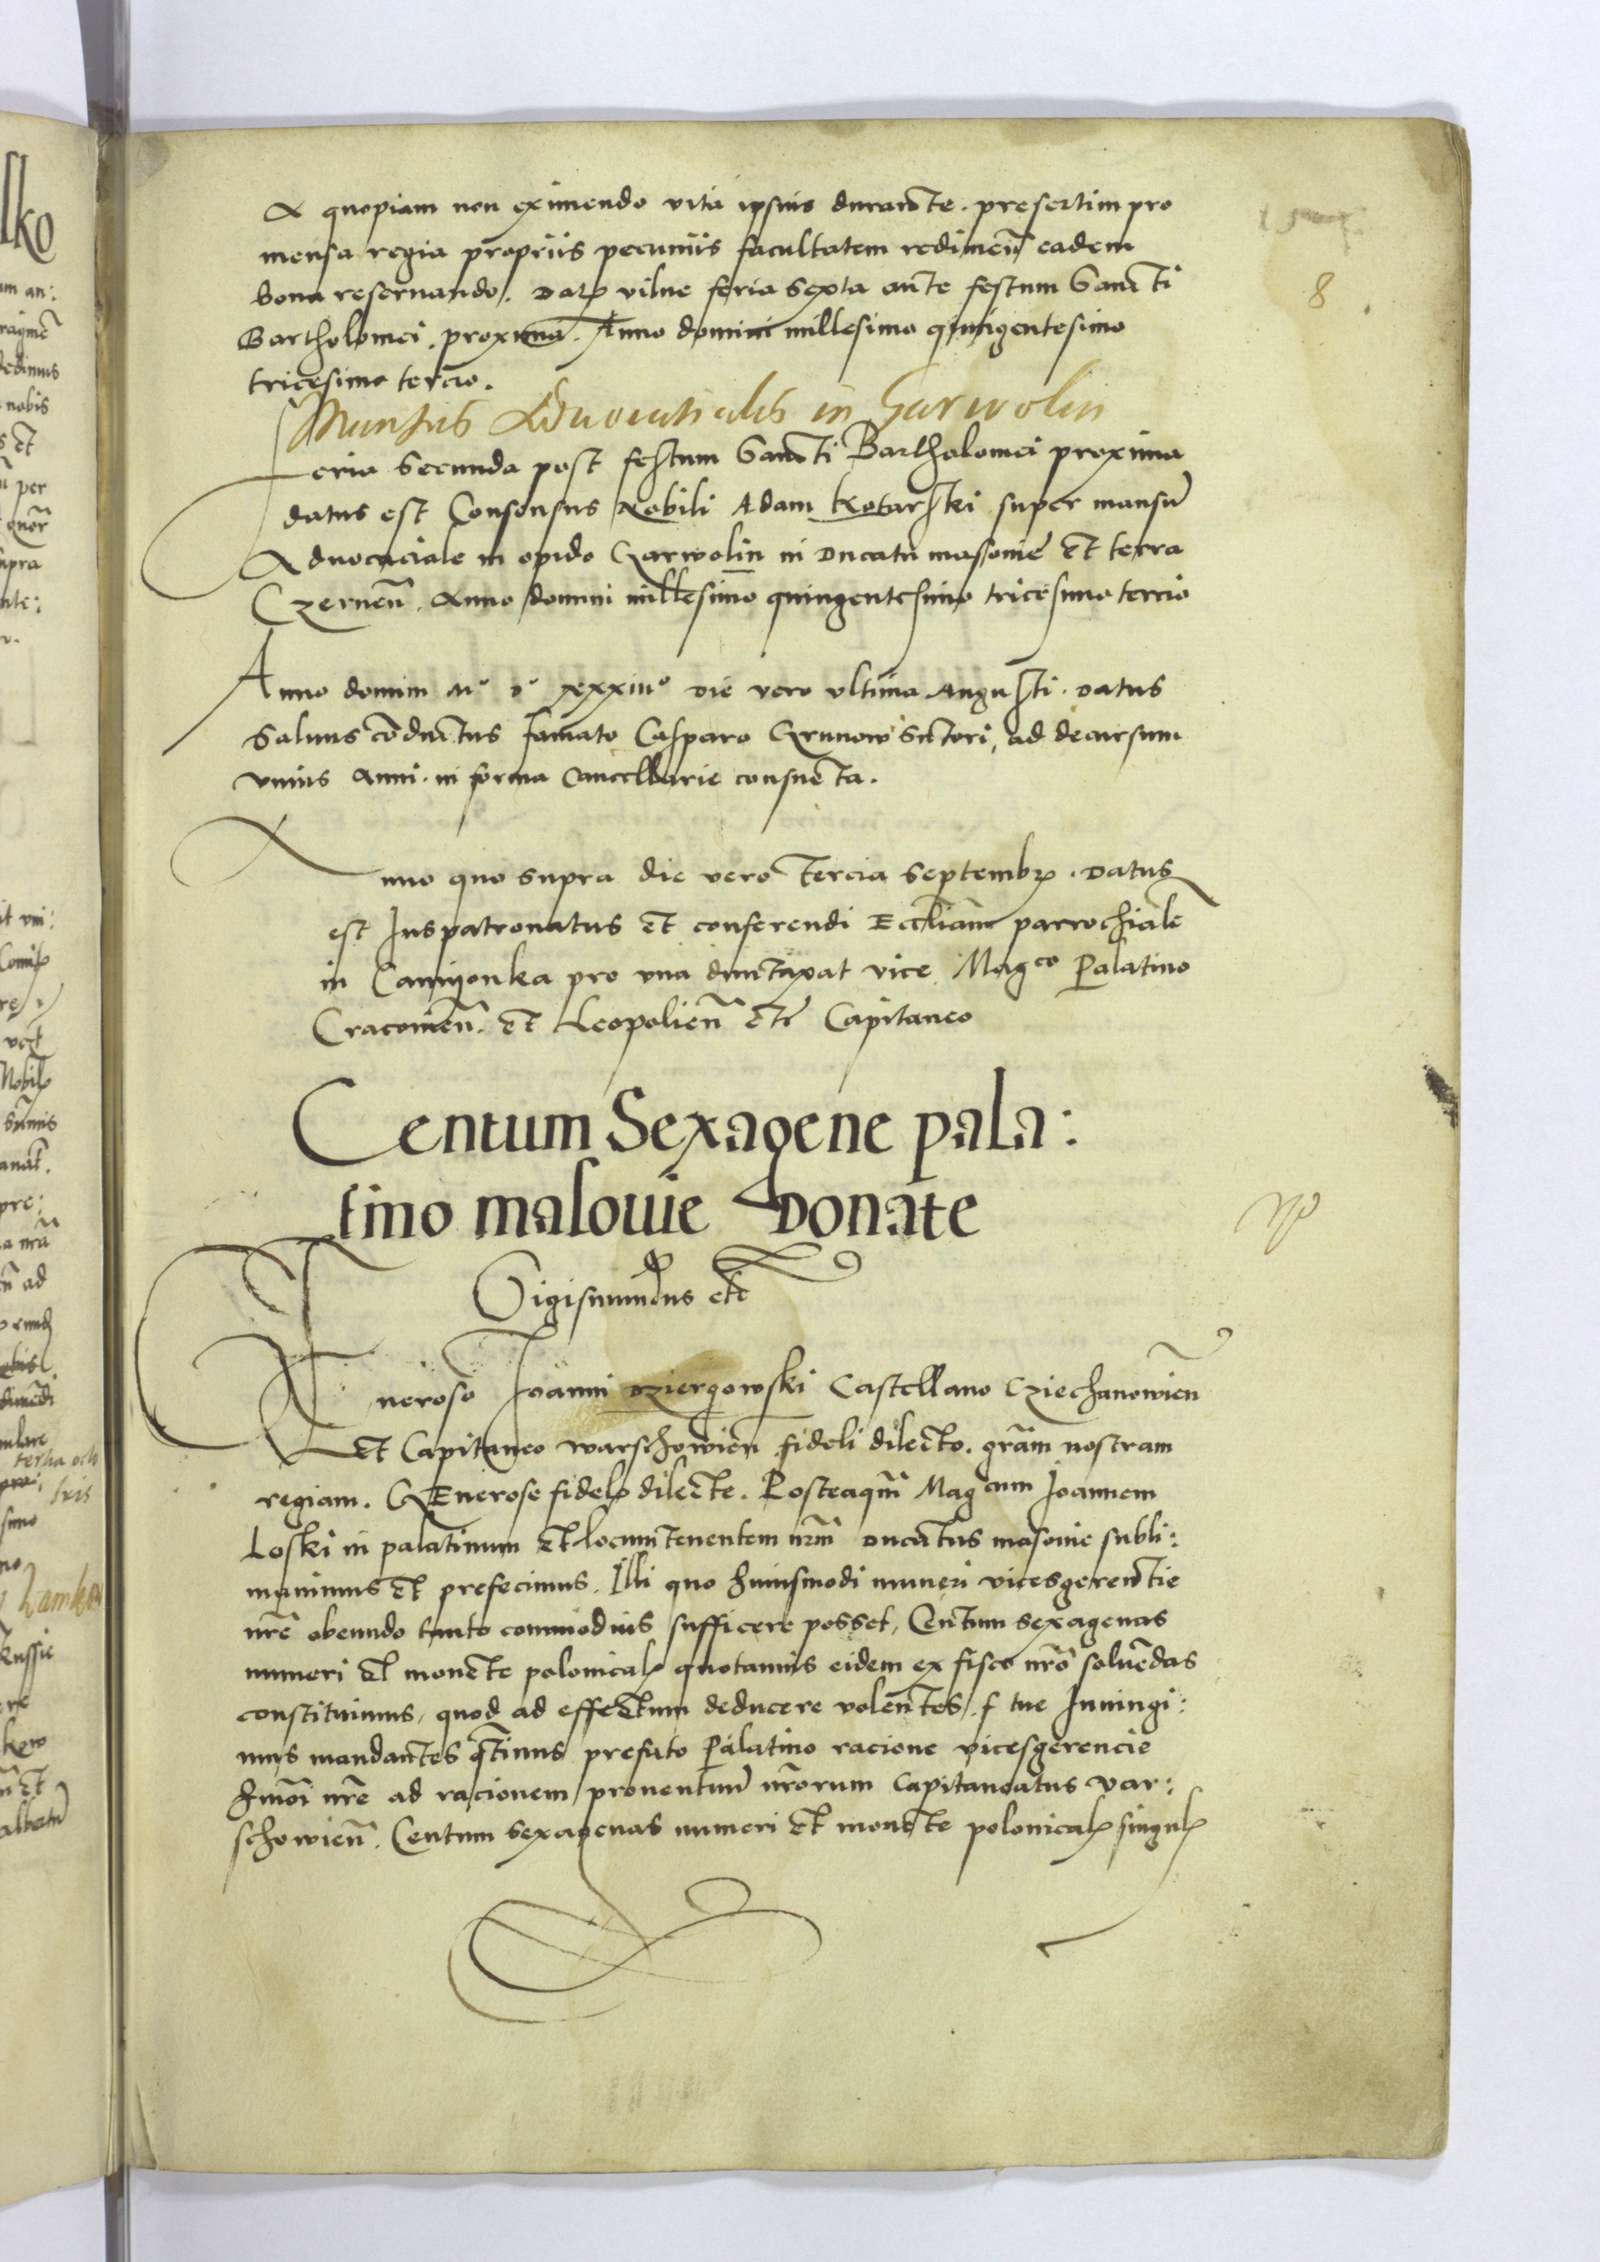 A quopiam non eximendo vita ipsius durante. presertim pro
mensa regia propriis pecuniis facultatem redimen̄ eadem
bona reservando. Datꝫ vilne feria sexta ante festum Sancti
Bartholomei. proxima. Anno domini millesimo quingentesimo
tricesimo tercio.
8
Mansus Advocatialis in Garwolin
Feria secunda post festum Sancti Bartholomei proxima
datus est Consensus Nobili Adam Kotarski super mansū
Advocaciale in opido Garwolin in Ducatu masovie et terra
Czernen̄. Anno domini millesimo quingentesimo tricesimo tercio
Anno domini Mº Dº xxxiiiº die vero ultima Augusti. Datus
Salvus cōductus famato Casparo Grunow Sutori, ad decursum
unius Anni. in forma Cancellarie consueta.
Anno quo supra die vero tercia Septembrꝫ. Datus
est Iuspatronatus et conferendi Eccliam parrochialē
in Camyonka pro una duntaxat vice Magco Palatino
Cracovien̄. et Leopolien̄ etc̄ Capitaneo
Centum Sexagene pala:
tino masovie Donate
Sigismundus etc̄
Generoso Joanni Dziergowski Castellano Cziechanowien̄
et Capitaneo warschowien̄ fideli dilecto. grām nostram
regiam. Generose fidelꝫ dilecte. Posteaqm̄ Magcum Joannem
Loski in palatinum et locumtenentem nrm̄ Ducatus masovie subli:
mavimus et prefecimus. Illi quo huiusmodi muneri vicesgerentie
nrē obeundo tanto commodius sufficere posset, Centum sexagenas
numeri et monete polonicalꝫ quotannis eidem ex fisco nrō solvēdas
constituimus, quod ad effectum deducere volentes, f tue Iniungi:
mus mandantes q̄tinus prefato Palatino racione vicesgerencie
hmōi nrē ad racionem proventuū nrōrum Capitaneatus var:
schowien̄. Centum sexagenas numeri et monete polonicalꝫ singulꝫ